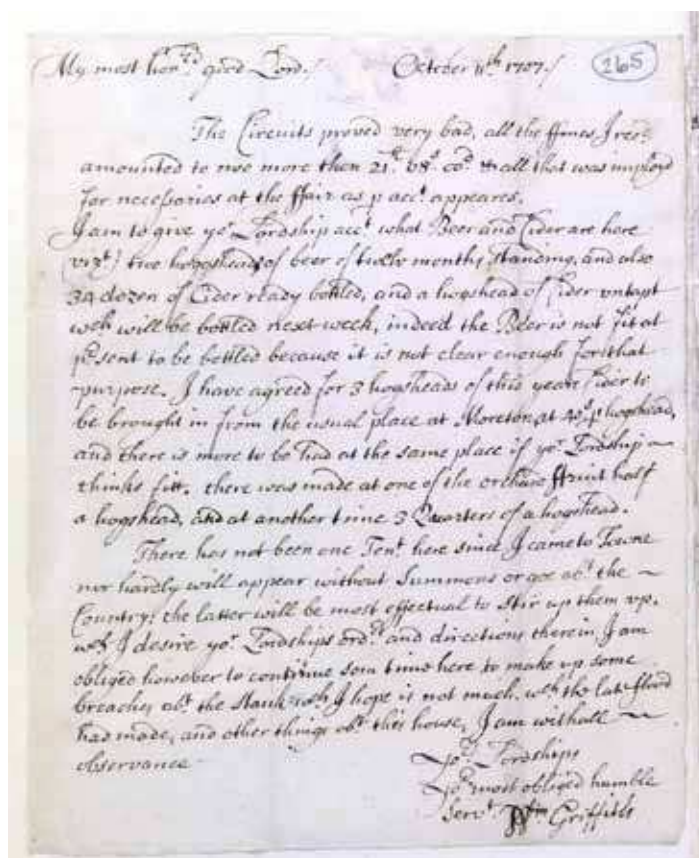 My most hon.rd good Lord./ October 11th 1707./ 265
The Circuits proved very bad, all the ffines I rec.d
amounted to noe more then 21li. 08s. 00d. & all that was imployd
for necessaries at the ffair as p acct appeares.
I am to give yor Lordship acct what Beer and Cider are here
(vizt) two hogsheads of beer of twelv months standing, and also
34 dozen of Cider ready bottled, and a hogshead of Cider vntapt
wch will be bottled next week, indeed the Beer is not fit at
psent to be bottled because it is not clear enough for that
purpose. I have agreed for 3 hogsheads of this year Cider to
be brought in from the usual place at Moreton, at 40s p hogshead,
and there is more to be had at the same place if yor Lordship
thinks fitt. there was made at one of the orchard ffruit half
a hogshead, and at another time 3 Quarters of a hogshead.
There has not been one Tent here since I came to Towne
nor hardly will appear without Summons or goe abt the
Country: the latter will be most effectual to stir up them vp.
wch I desire yor Lordships ordrs and directions therein. I am
obliged however to continue som time here to make up some
breaches abt the Stank wch I hope is not much, wch the late fflood
had made, and other things abt this house, I am withall
observance
yor Lordships
yor most obliged humble
Servt Wm Griffith